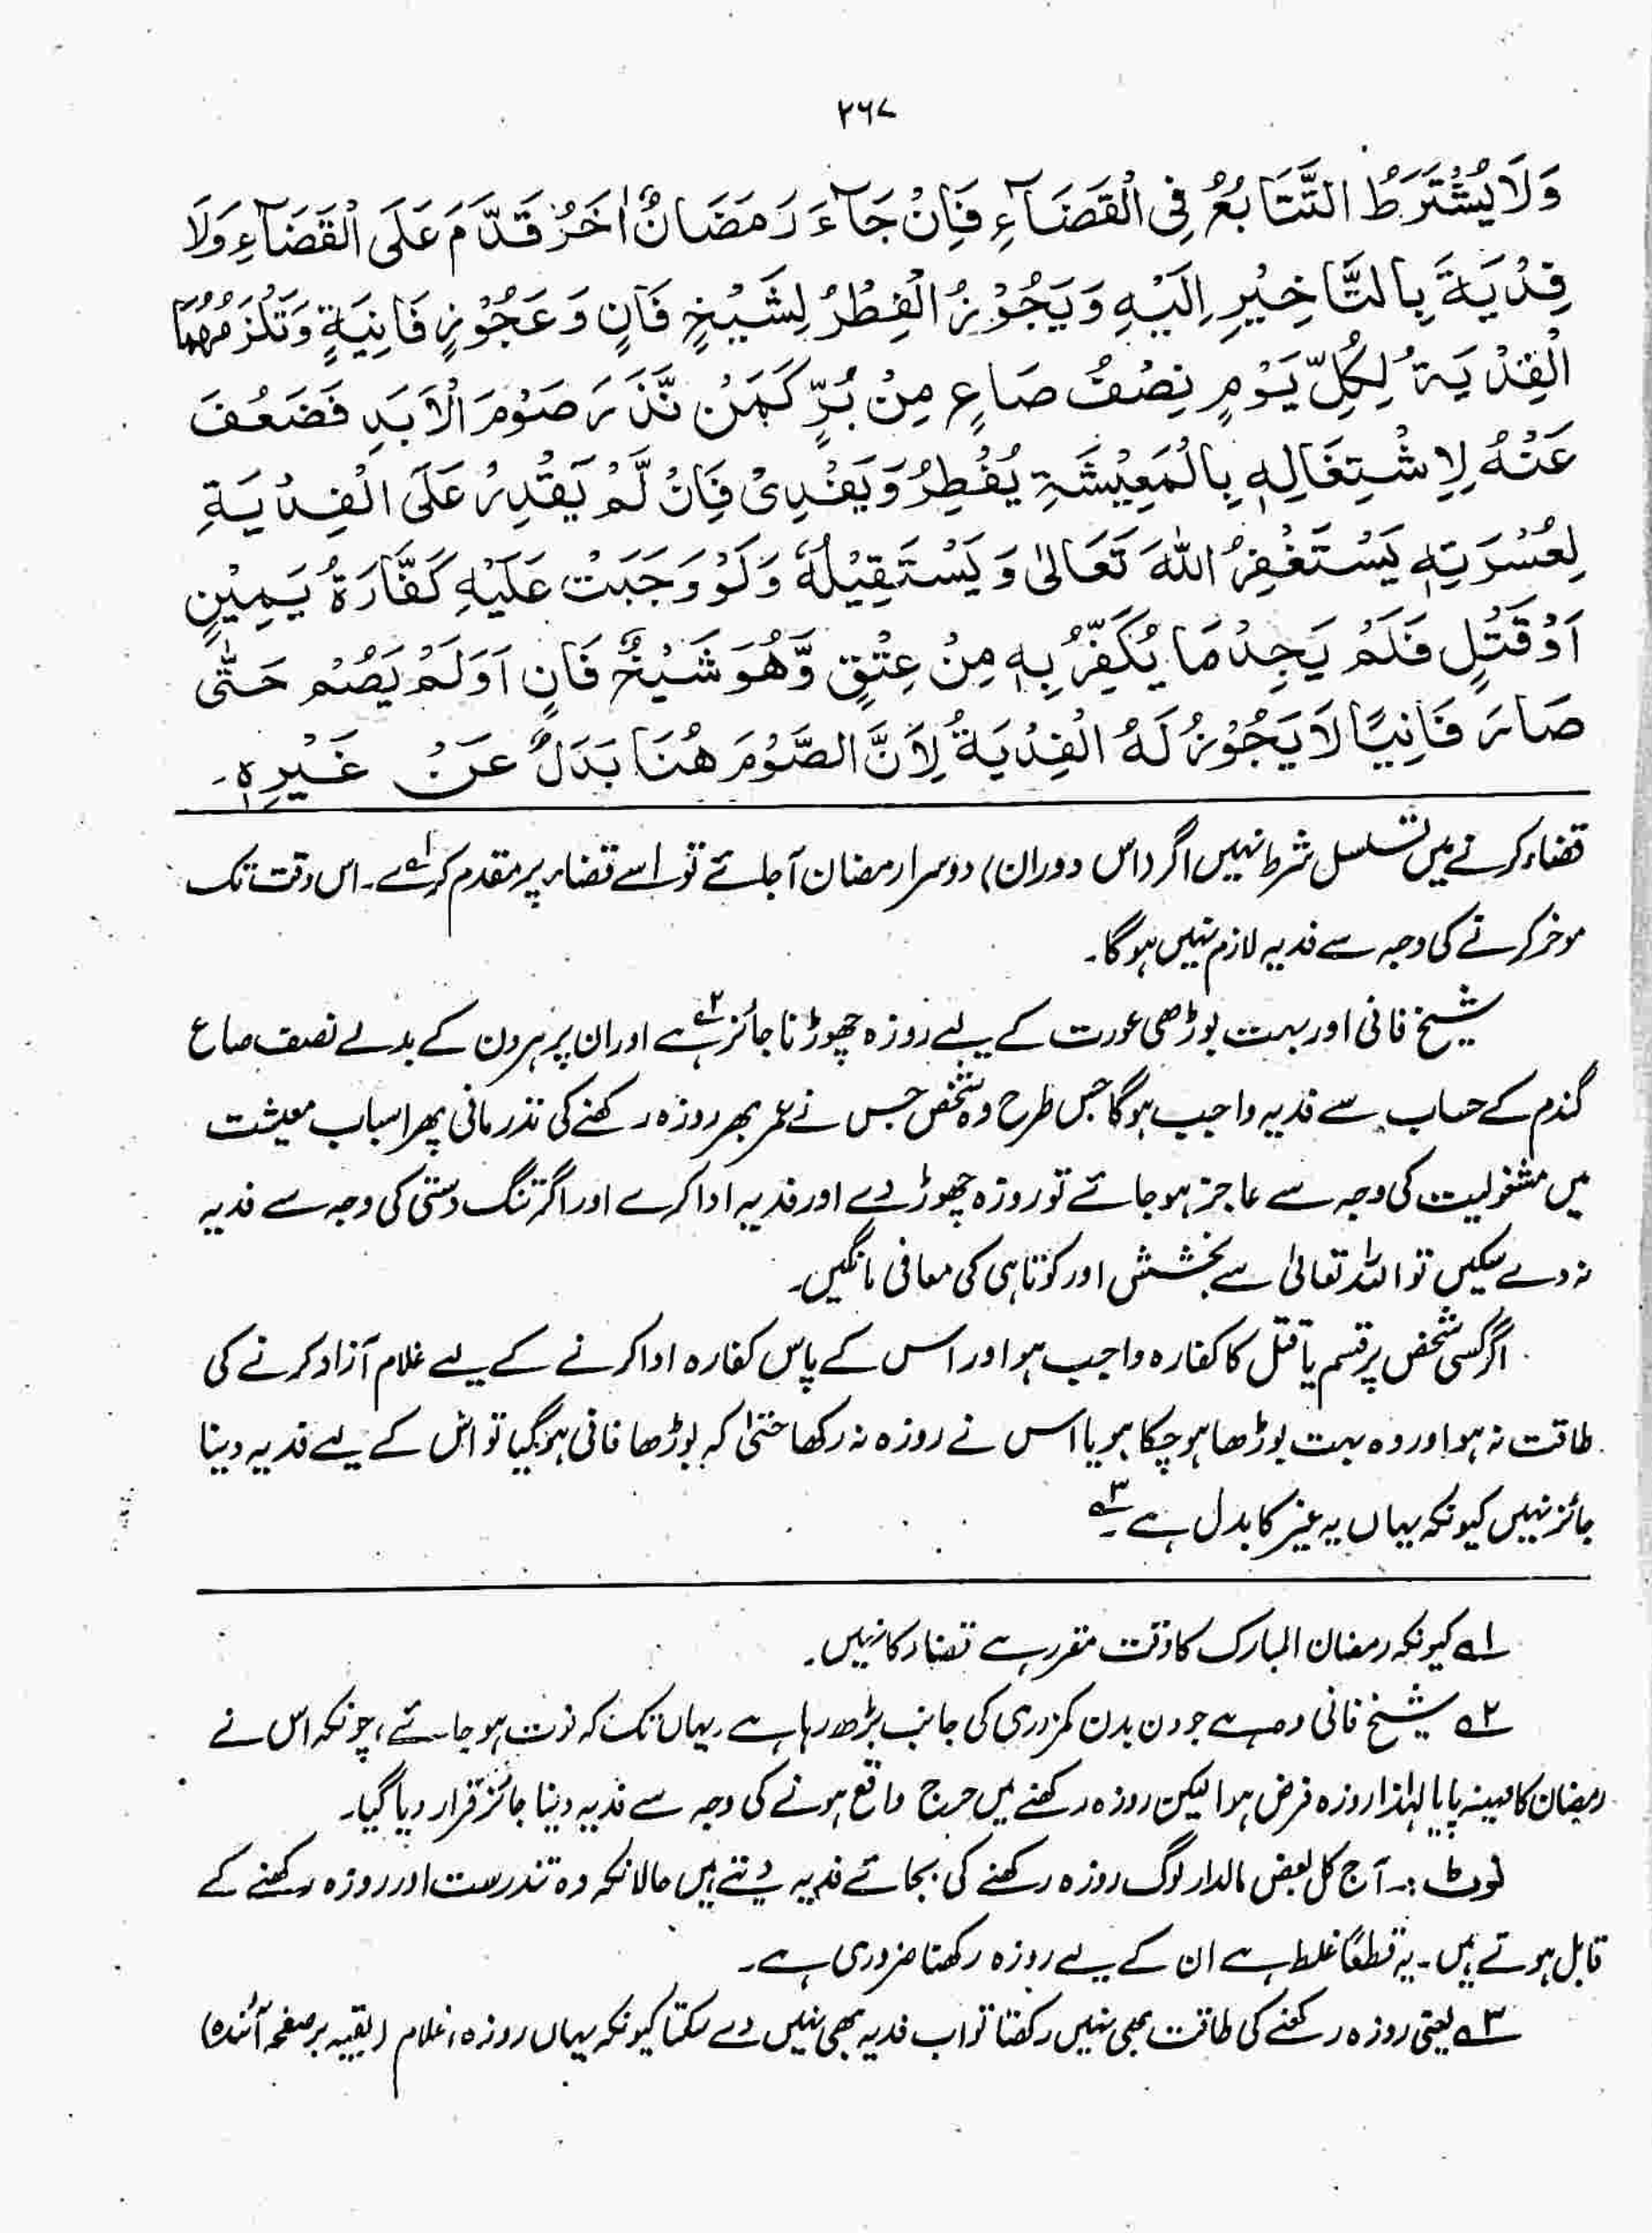 ۲۶۷
وَلَا يُشْتَرَطُ التَّتَابُعُ فِي الْقَضَآءِ فَاِنْ جَآءَ رَمَضَانٌ اٰخَرُ قَدَّمَ عَلَى الْقَضَآءِ وَلَا
فِدْيَةَ بِالتَّاخِيْرِ اِلَيْهِ وَيَجُوْزُ الْفِطْرُ لِشَيْخٍ فَانٍ وَعَجُوْزٍ فَانِيَةٍ وَتَلْزَمُهُمَا
الْفِدْيَةُ لِكُلِّ يَوْمٍ نِصْفُ صَاعٍ مِنْ بُرٍّ كَمَنْ نَّذَرَ صَوْمَ الْاَبَدِ فَضَعُفَ
عَنْهُ لِاِشْتِغَالِهٖ بِالْمَعِيْشَةِ يُفْطِرُ وَيَفْدِيْ فَاِنْ لَّمْ يَقْدِرْ عَلَى الْفِدْيَةِ
لِعُسْرَتِهٖ يَسْتَغْفِرُ اللّٰهَ تَعَالٰى وَيَسْتَقِيْلُهٗ وَلَوْ وَجَبَتْ عَلَيْهِ كَفَّارَةُ يَمِيْنٍ
اَوْ قَتْلٍ فَلَمْ يَجِدْ مَا يُكَفِّرُ بِهٖ مِنْ عِتْقٍ وَّهُوَ شَيْخٌ فَانٍ اَوْ لَمْ يَصُمْ حَتّٰى
صَارَ فَانِيًا لَا يَجُوْزُ لَهُ الْفِدْيَةُ لِاَنَّ الصَّوْمَ هُنَا بَدَلٌ عَنْ غَيْرِهٖ۔
قضاء کرنے میں تسلسل شرط نہیں اگر (اس دوران) دوسرا رمضان آجائے تو اسے قضاء پر مقدم کرے۱ے۔ اس وقت تک
موخر کرنے کی وجہ سے فدیہ لازم نہیں ہوگا۔
شیخ فانی اور بہت بوڑھی عورت کے لیے روزہ چھوڑنا جائز ہے۲ اور ان پر ہر دن کے بدلے نصف صاع
گندم کے حساب سے فدیہ واجب ہوگا جس طرح وہ شخص جس نے عمر بھر روزہ رکھنے کی نذر مانی پھر اسباب معیشت
میں مشغولیت کی وجہ سے عاجز ہو جائے تو روزہ چھوڑ دے اور فدیہ ادا کرے اور اگر تنگ دستی کی وجہ سے فدیہ
نہ دے سکیں تو اللہ تعالیٰ سے بخشش اور کوتاہی کی معافی مانگیں۔
اگر کسی شخص پر قسم یا قتل کا کفارہ واجب ہو اور اس کے پاس کفارہ ادا کرنے کے لیے غلام آزاد کرنے کی
طاقت نہ ہو اور وہ بہت بوڑھا ہو چکا ہو یا اس نے روزہ نہ رکھا حتیٰ کہ بوڑھا فانی ہو گیا تو اس کے لیے فدیہ دینا
جائز نہیں کیونکہ یہاں یہ غیر کا بدل ہے۳۔
۱ے کیونکہ رمضان المبارک کا وقت مقرر ہے قضاء کا نہیں۔
۲ے شیخ فانی وہ ہے جو دن بدن کمزوری کی جانب بڑھ رہا ہے۔ یہاں تک کہ فوت ہو جائے، چونکہ اس نے
رمضان کا مہینہ پایا لہٰذا روزہ فرض ہوا لیکن روزہ رکھنے میں حرج واقع ہونے کی وجہ سے فدیہ دینا جائز قرار دیا گیا۔
نوٹ :۔ آج کل بعض مالدار لوگ روزہ رکھنے کی بجائے فدیہ دیتے ہیں حالانکہ وہ تندرست اور روزہ رکھنے کے
قابل ہوتے ہیں۔ یہ قطعًا غلط ہے ان کے لیے روزہ رکھنا ضروری ہے۔
۳ے یعنی روزہ رکھنے کی طاقت بھی نہیں رکھتا تو اب فدیہ بھی نہیں دے سکتا کیونکہ یہاں روزہ، غلام (بقیہ بر صفحہ آئندہ)